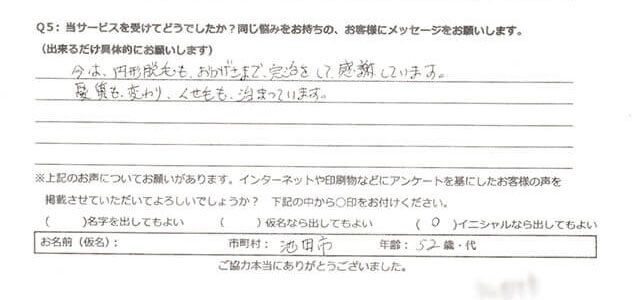 Q5：当サービスを受けてどうでしたか？同じ悩みをお持ちの、お客様にメッセージをお願いします。
(出来るだけ具体的にお願いします)
今は、円形脱毛も、おかげさまで、完治をして、感謝しています。
髪質も、変わり、くせ毛も、治まっています。
※上記のお声についてお願いがあります。インターネットや印刷物などにアンケートを基にしたお客様の声を
掲載させていただいてよろしいでしょうか？ 下記の中から○印をお付けください。
(　　)名字を出してもよい　(　　)仮名なら出してもよい　( O )イニシャルなら出してもよい
お名前（仮名）：　市町村： 池田市　年齢： 52 歳・代
ご協力本当にありがとうございました。